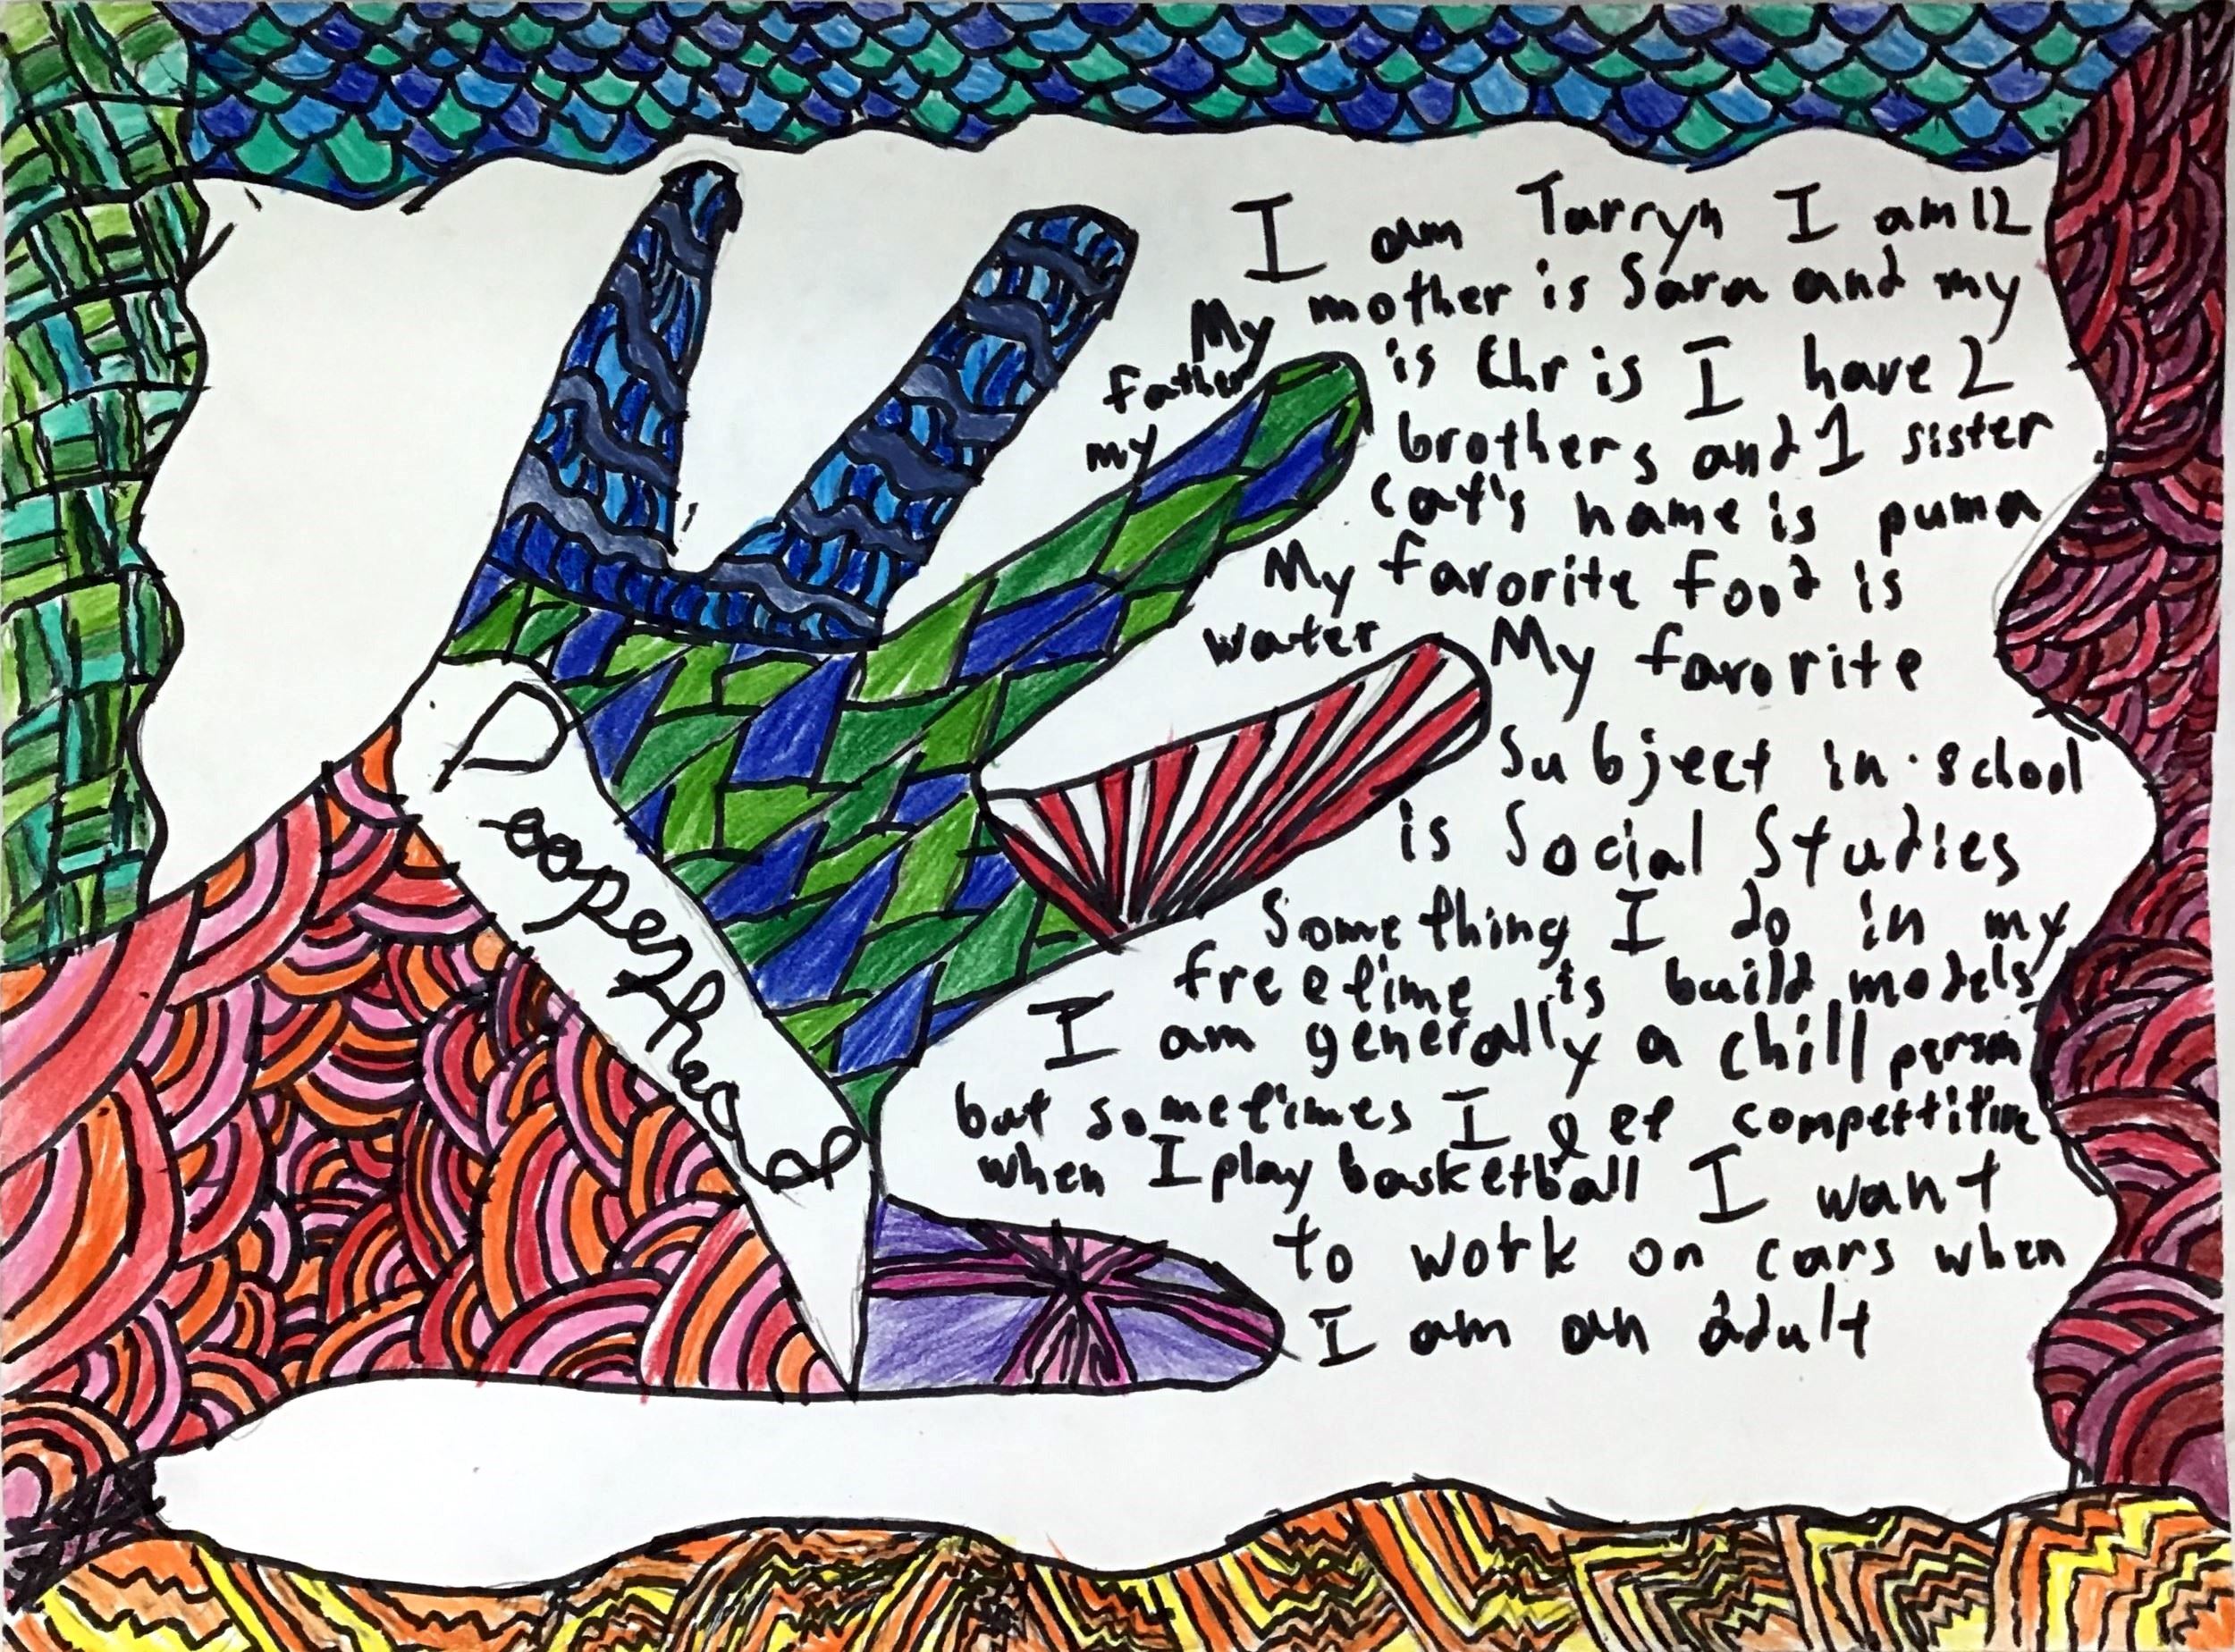 I am Tarryn I am 12
My mother is Sara and my
father is Chris I have 2
brothers and 1 sister
my cat's name is puma
My favorite food is
water My favorite
Subject in school
is Social Studies
Something I do in my
freetime is build models
I am generally a chill person
but sometimes I get competitive
when I play basketball I want
to work on cars when
I am an adult
Pooperhead